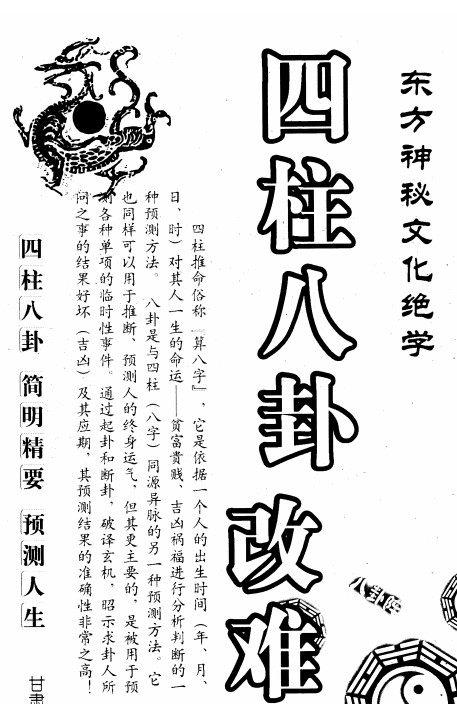 东方神秘文化绝学
四柱八卦
改难
四柱推命俗称『算八字』，它是依据一个人的出生时间（年、月、
日、时）对其人一生的命运——贫富贵贱、吉凶祸福进行分析判断的一
种预测方法。 八卦是与四柱（八字）同源异脉的另一种预测方法。它
也同样可以用于推断、预测人的终身运气，但其更主要的，是被用于预
测各种单项的临时性事件。通过起卦和断卦，破译玄机，昭示求卦人所
问之事的结果好坏（吉凶）及其应期，其预测结果的准确性非常之高！
四柱八卦 简明精要 预测人生
八卦
甘肃